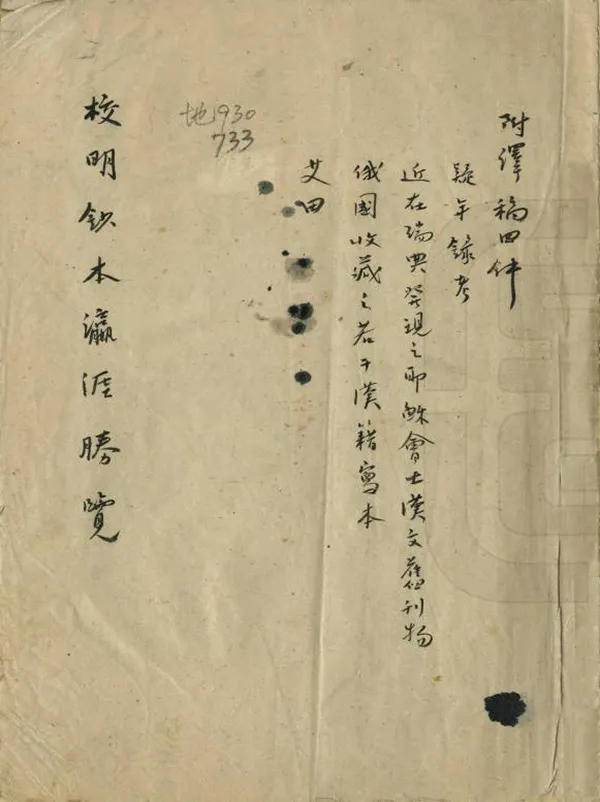 附譯稿四件
疑年錄考
近在瑞典發現之耶穌會士漢文舊刊物
俄國收藏之若干漢籍寫本
艾田
地930
733
校明鈔本瀛涯勝覽